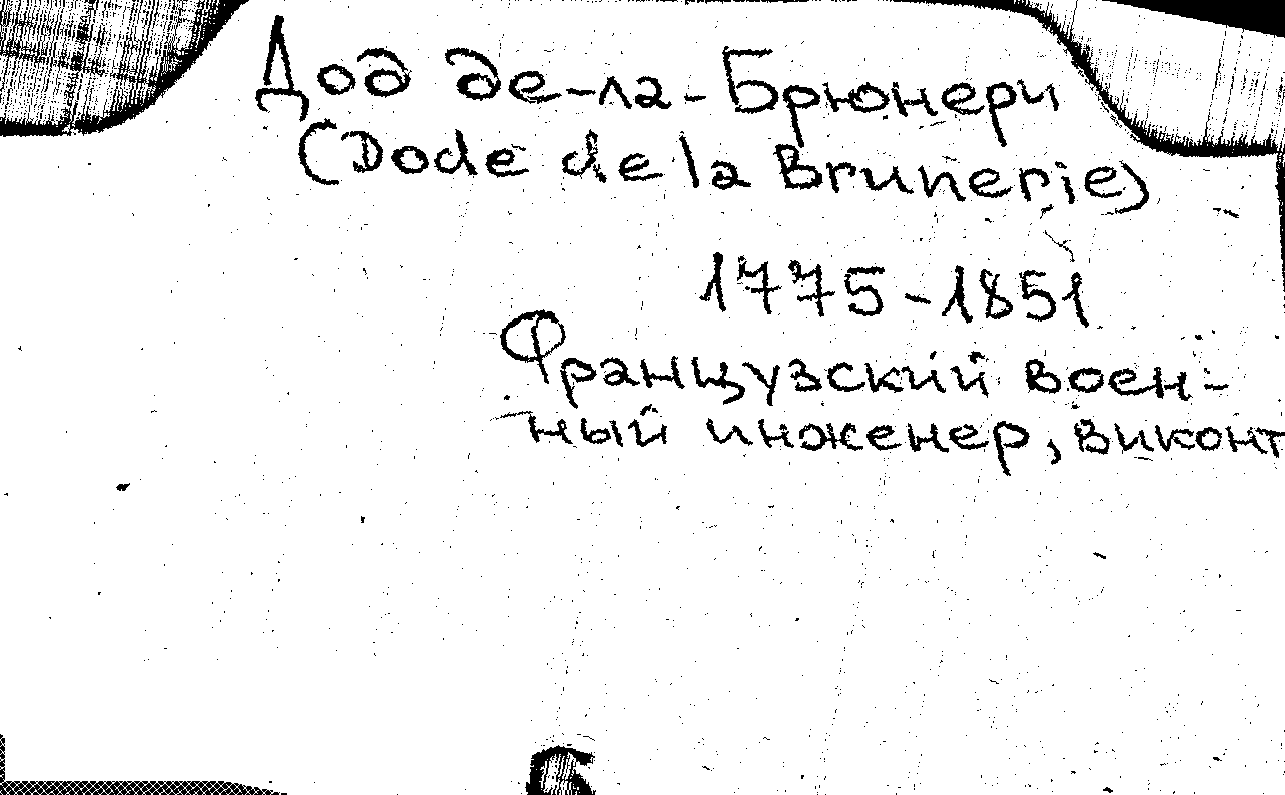 Дод де-ла-Брюнери
(Dode de la Brunerie)
1775-1851
Французский воен-
ный инженер, виконт